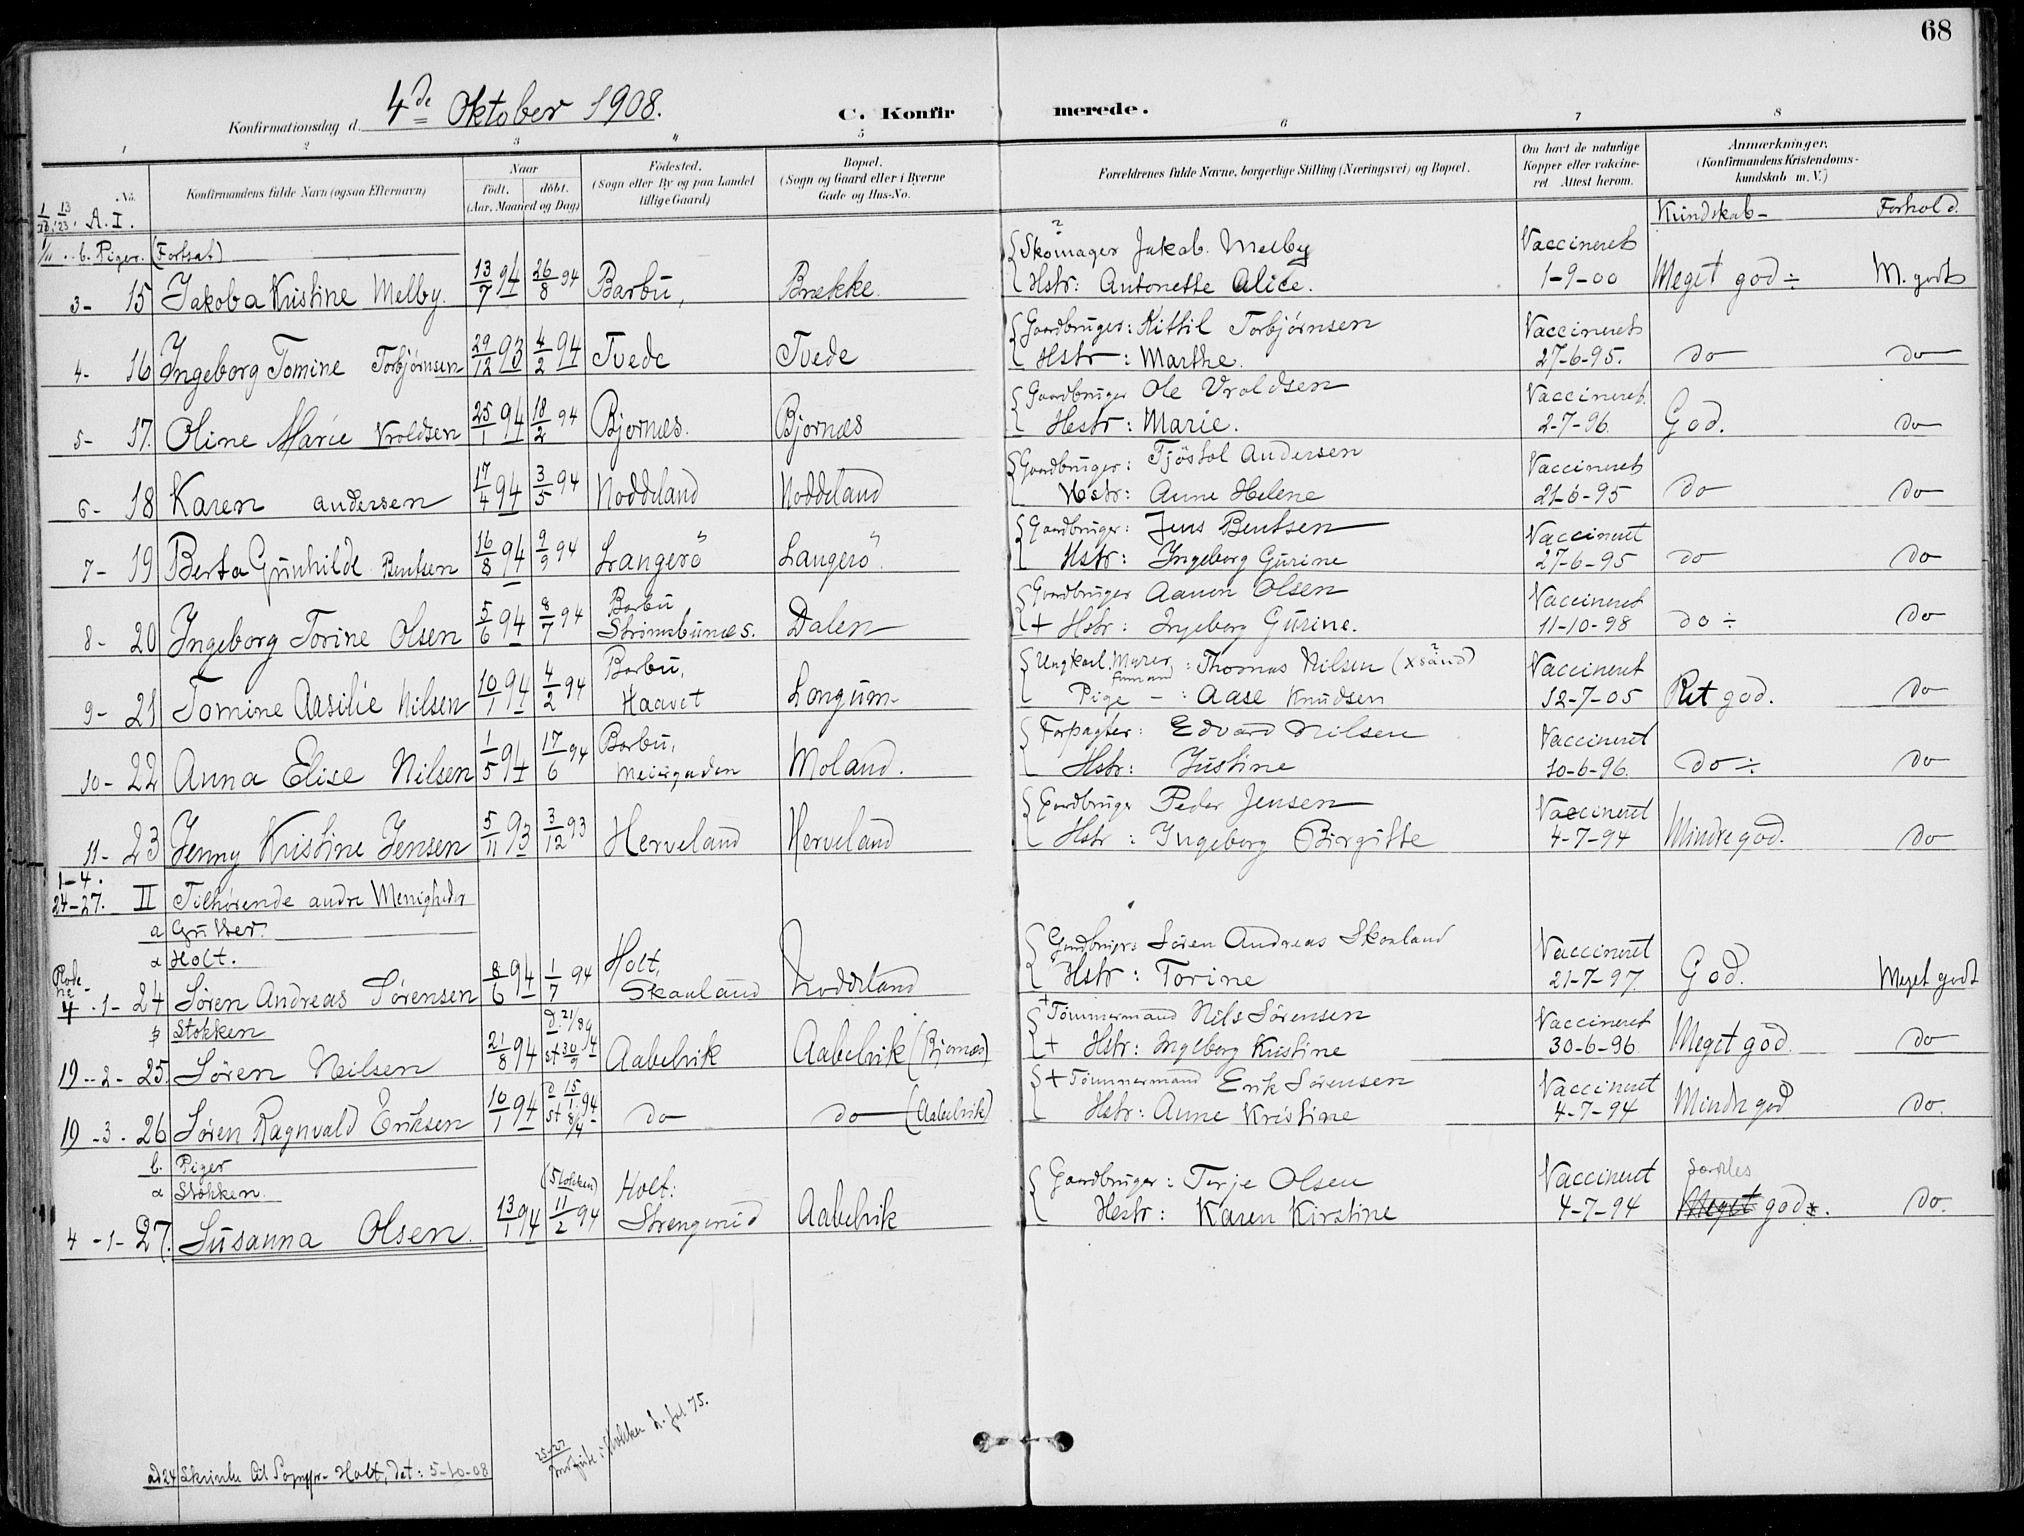 68
Konfirmationsdag d. 4de Oktober 1908.
C. Konfirmerede.
1 2 3 4 5 6 7 8
No. Konfirmandens fulde Navn (ogsaa Efternavn) Naar født. døbt. (Aar, Maaned og Dag) Fødested. (Sogn eller By og paa Landet tillige Gaard) Bopæl. (Sogn og Gaard eller i Byerne Gade og Hus-No. Forældrenes fulde Navne, borgerlige Stilling (Næringsvei) og Bopæl. Om havt de naturlige Kopper eller vaccineret Attest herom. Anmærkninger, (Konfirmandens Kristendomskundskab m. V.)
A. I. Kundskab- Forhold.
b. Piger. (Fortsat)
3- 15 Jakoba Kristine Melby. 13/7 94 26/8 94 Barbu, Brække. Skomager Jakob Melby Vaccineret Meget god ÷ M. godt
Hstr: Antonette Alice. 1-9-00
4- 16 Ingeborg Tomine Torbjørnsen 29/12 93 4/2 94 Tvede Tvede Gaardbruger: Kittil Torbjørnsen Vaccineret do do
Hstr: Marthe. 27-6-95.
5- 17. Oline Marie Vroldsen 25/1 94 18/2 94 Bjornæs. Bjornæs Gaardbruger Ole Vroldsen Vaccineret God. do
Hestr: Marie. 2-7-96.
6- 18 Karen Andersen 17/4 94 3/5 94 Noddeland Noddeland Gaardbruger: Tjöstol Andersen Vaccineret do do
Hstr: Anne Helene 21-6-95
7- 19 Berta Gunhilde Bentsen 16/8 94 9/9 94 Langerö Langerö. Gaardbruger: Jens Bentsen Vaccineret do do
Hstr: Ingeborg Gurine 27-6-95
8- 20 Ingeborg Torine Olsen 5/6 94 8/7 94 Barbu Strömsbunes. Dalen Gaardbruger Aanon Olsen Vaccineret do ÷ do
+ Hstr: Ingeborg Gurine. 11-10-98
9- 21 Tomine Aasilie Nilsen 10/1 94 4/2 94 Barbu, Haavet Longum Ungkarl, Murer : Thomas Nilsen (Xsand) Vaccineret Ret god. do
Pige - : Aase Knudsen 12-7-05
10- 22 Anna Elise Nilsen 1/5 94 17/6 94 Barbu, Meiergaden Moland. Forpagter: Edvard Nilsen Vaccineret do ÷ do
Hstr: Justine 10-6-96.
11- 23 Jenny Kristine Jensen 5/11 93 3/12 93 Herveland Herveland Gardbruger Peder Jensen Vaccineret Mindre god. do
Hstr: Ingeborg Birgitte 4-7-94
1-4.
24-27. II Tilhørende andre Menigheder
a Gutter.
α Holt.
4 . 1 - 24 Søren Andreas Sørensen 8/6 94 1/7 94 Holt, Skaaland Noddeland Gardbruger: Søren Andreas Skaaland Vaccineret God. Meget godt
Hstr: Torine 21-7-97
β Stokken
19 - 2 - 25. Søren Nilsen 21/8 94 d. 21/8 94 st 30/9 Aabelvik Aabelvik (Bjornæs) + Tömmermand Nils Sørensen Vaccineret Meget god. do
+ Hstr: Ingeborg Kristine 30-6-96
19 - 3 . 26 Søren Ragnvald Eriksen 10/1 94 d 15/1 94 st 8/4 do do (Aabelvik) + Tømmermand Erik Sørensen Vaccineret Mindre god do.
Hstr: Anne Kristine 4-7-94
b. Piger
α Stokken.
4 - 1 - 27. Susanna Olsen. 13/1 94 (Stokken) 11/2 94 Holt: Strengereid Aabelvik Gaardbruger: Terje Olsen Vaccineret Særdeles Meget god. do.
Hestr: Karen Kirstine 4-7-94
25-27 i Stokken fol 75.
ad 24 til Holt, det: 5-10-08